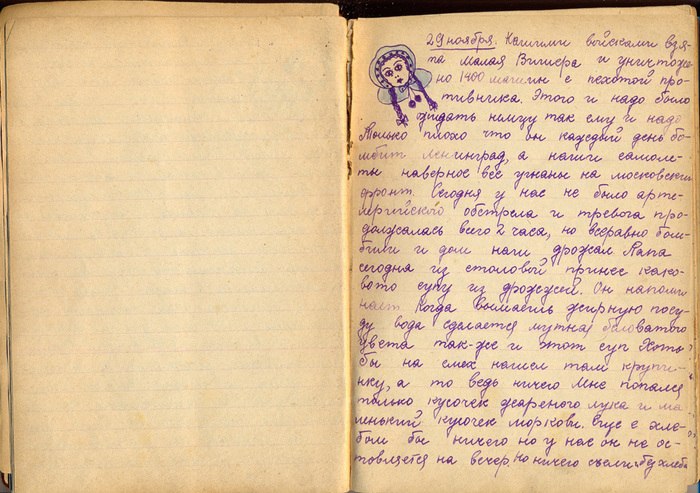 29 ноября. Нашими войсками взя-
та малая Вишера и уничтоже-
но 1400 машин с пехотой про-
тивника. Этого и надо было
ожидать немцу так ему и надо
Только плохо что он каждый день бо-
мбит Ленинград, а наши самоле-
ты наверное все угнаны на московский
фронт. Сегодня у нас не было арте-
лерийского обстрела и тревога про-
должалась всего 2 часа, но всеравно бом-
били и дом наш дрожал Папа
сегодня из столовой принес како-
вото супу из дрожжей. Он напоми
нает когда вымаешь жирную посу-
ду вода сделается мутная беловатого
цвета так-же и этот суп Хотя
бы на смех нашел там крупи-
нку, а то ведь ничего мне попался
только кусочек жареного лука и ма-
ленький кусочек моркови. Еще с хле-
бом бы ничего но у нас он не ос-
товляется на вечер, но ничего съели и без хлеба